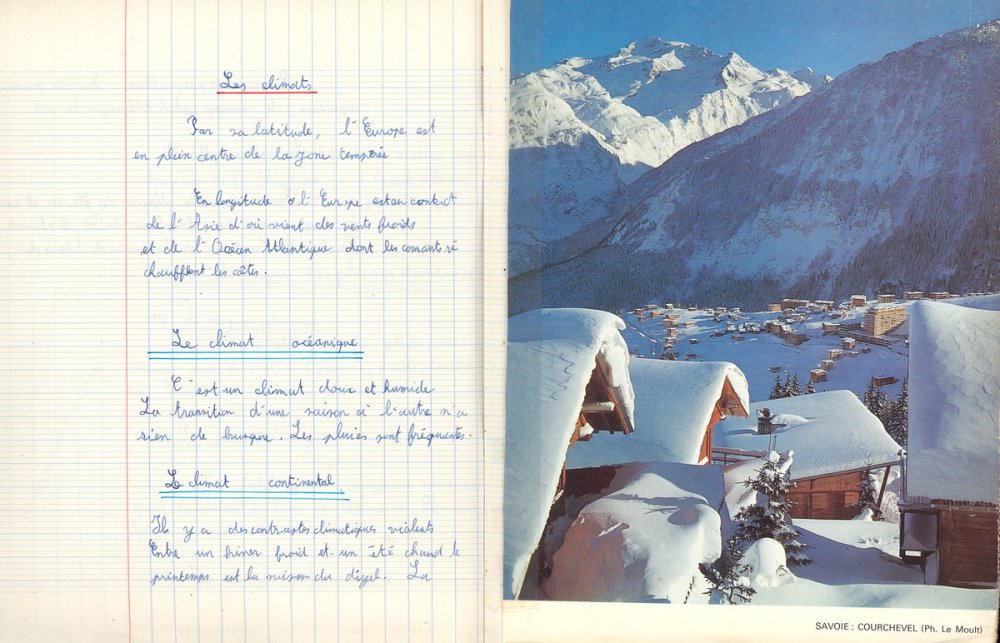 Les climats
Par sa latitude, l'Europe est
en plein centre de la zone tempérée
En longitude l'Europe est au contact
de l'Asie d'où vient des vents froids
et de l'Océan Atlantique dont les comant ré
chauffent les côtes.
Le climat océanique
C'est un climat doux et humide
La transition d'une saison à l'autre n'a
rien de burque. Les pluies sont fréquantes.
Le climat continental
Il y a des contrastes climatiques violents
Entre un hiver froid et un été chaud le
printemps est la saison du dégel. La
SAVOIE : COURCHEVEL (Ph. Le Moult)